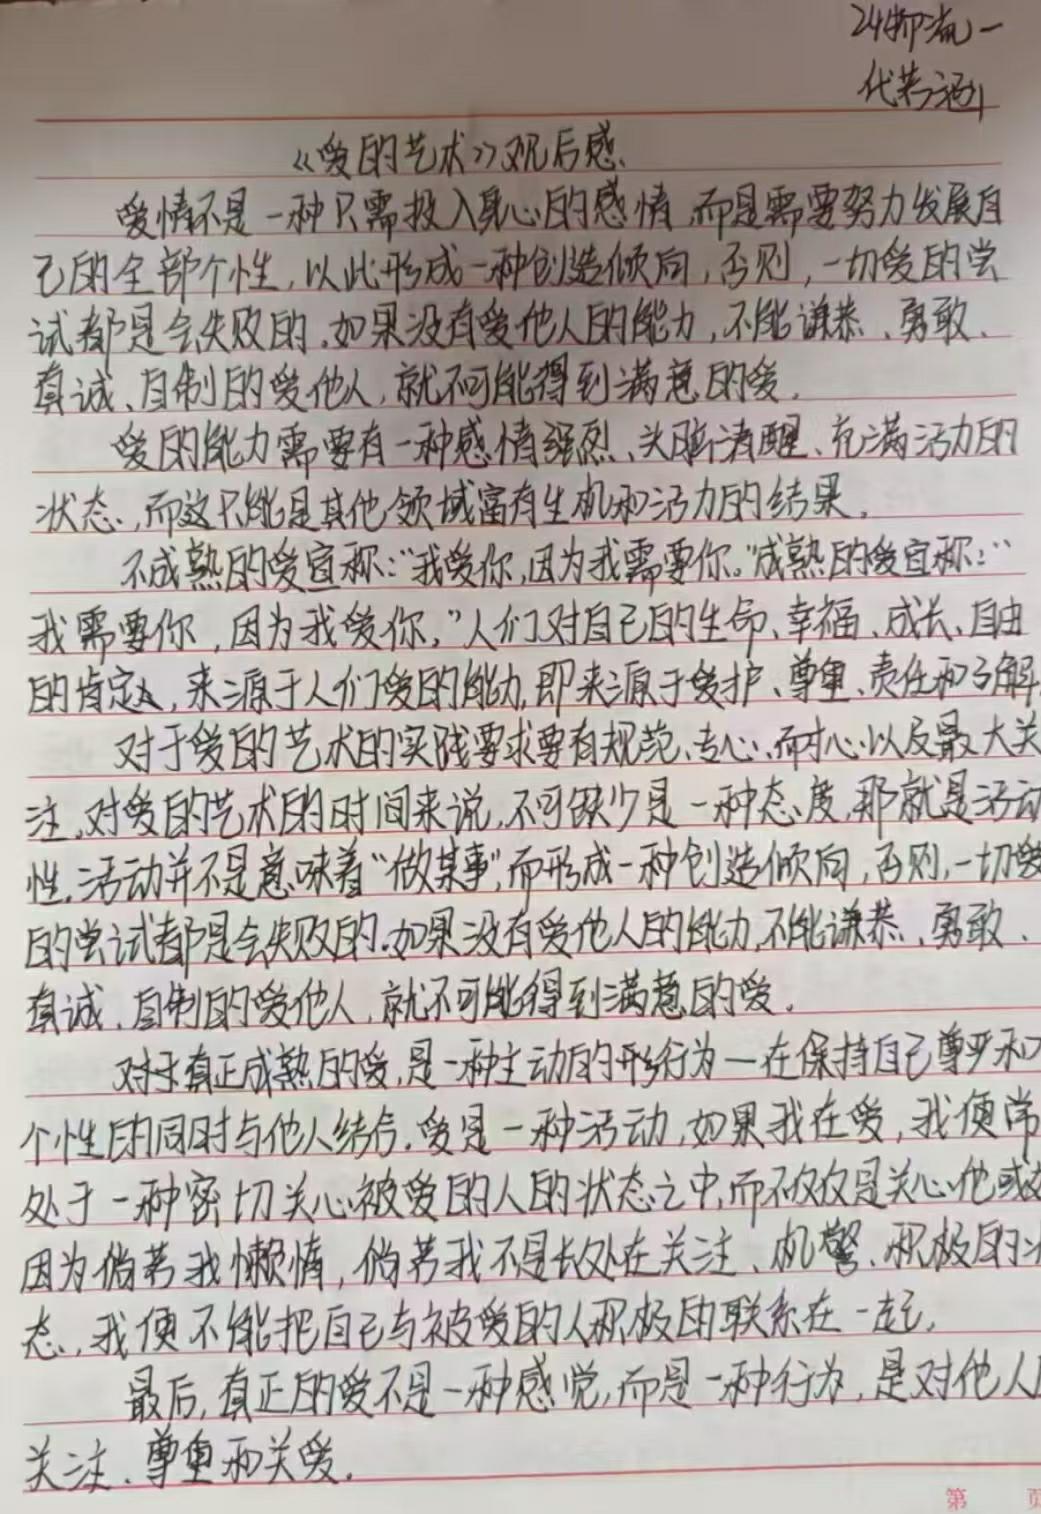 代若涵
《爱的艺术》观后感
爱情不是一种只需投入身心的感情而是需要努力发展自
己的全部个性,以此形成一种创造倾向,否则,一切爱的尝
试都是会失败的.如果没有爱他人的能力,不能谦恭、勇敢、
真诚、自制的爱他人,就不可能得到满意的爱.
爱的能力需要有一种感情强烈、头脑清醒、充满活力的
状态,而这只能是其他领域富有生机和活力的结果.
不成熟的爱宣称:"我爱你,因为我需要你。"成熟的爱宣称:"
我需要你,因为我爱你."人们对自己的生命、幸福、成长、自由
的肯定,来源于人们爱的能力,即来源于爱护、尊重、责任和了解
对于爱的艺术的实践要求要有规范、专心、耐心以及最大关
注.对爱的艺术的时间来说,不可缺少是一种态度,那就是活动
性.活动并不是意味着"做某事",而形成一种创造倾向,否则,一切爱
的尝试都是会失败的.如果没有爱他人的能力,不能谦恭、勇敢、
真诚、自制的爱他人,就不可能得到满意的爱.
对于真正成熟的爱,是一种主动的形行为—在保持自己尊严和
个性的同时与他人结合.爱是一种活动,如果我在爱,我便常
处于一种密切关心被爱的人的状态之中,而不仅仅是关心他或
因为倘若我懒惰,倘若我不是长处在关注、机警、积极的状
态,我便不能把自己与被爱的人积极的联系在一起.
最后,真正的爱不是一种感觉,而是一种行为,是对他人
关注、尊重和关爱.
第 页